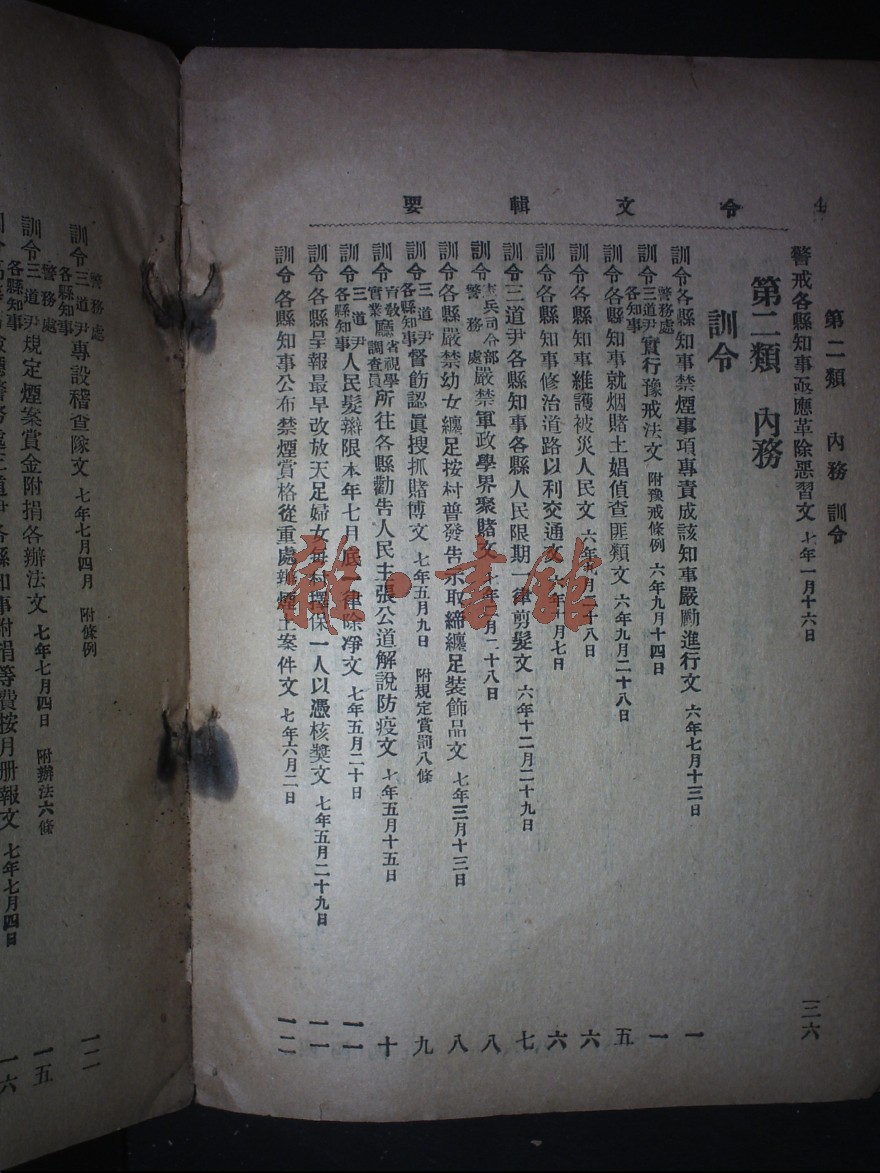 令文輯要
第二類　內務　訓令
警戒各縣知事亟應革除惡習文　七年一月十六日　三六
第二類　內務
訓令
訓令各縣知事禁煙事項專責成該知事嚴勵進行文　六年七月十三日　一
訓令警務處三道尹各知事實行豫戒法文　附豫戒條例　六年九月十四日　一
訓令各縣知事就烟賭土娼偵查匪類文　六年九月二十八日　五
訓令各縣知事維護被災人民文　六年　月二十八日　六
訓令各縣知事修治道路以利交通文　六年　月七日　六
訓令三道尹各縣知事各縣人民限期一律剪髮文　六年十二月二十九日　七
訓令憲兵司令部警務處嚴禁軍政學界聚賭文　七年　月二十八日　八
訓令各縣嚴禁幼女纏足按村普發告示取締纏足裝飾品文　七年三月十三日　八
訓令三道尹各縣知事督飭認眞搜抓賭博文　七年五月九日　附規定賞罰八條　九
訓令育敎廳省視學實業廳調查員所往各縣勸告人民主張公道解說防疫文　七年五月十五日　十
訓令三道尹各縣知事人民髮辮限本年七月底一律除淨文　七年五月二十日　一一
訓令各縣呈報最早改放天足婦女每村擇保一人以憑核獎文　七年五月二十九日　一一
訓令各縣知事公布禁煙賞格從重處辦煙土案件文　七年六月二日　一二
訓令警務處三道尹各縣知事專設稽查隊文　七年七月四日　附條例　一二
訓令警務處三道尹各縣知事規定煙案賞金附捐各辦法文　七年七月四日　附辦法六條　一五
警務處三道尹各縣知事附捐等費按月册報文　七年七月四日　一六
雜·書館